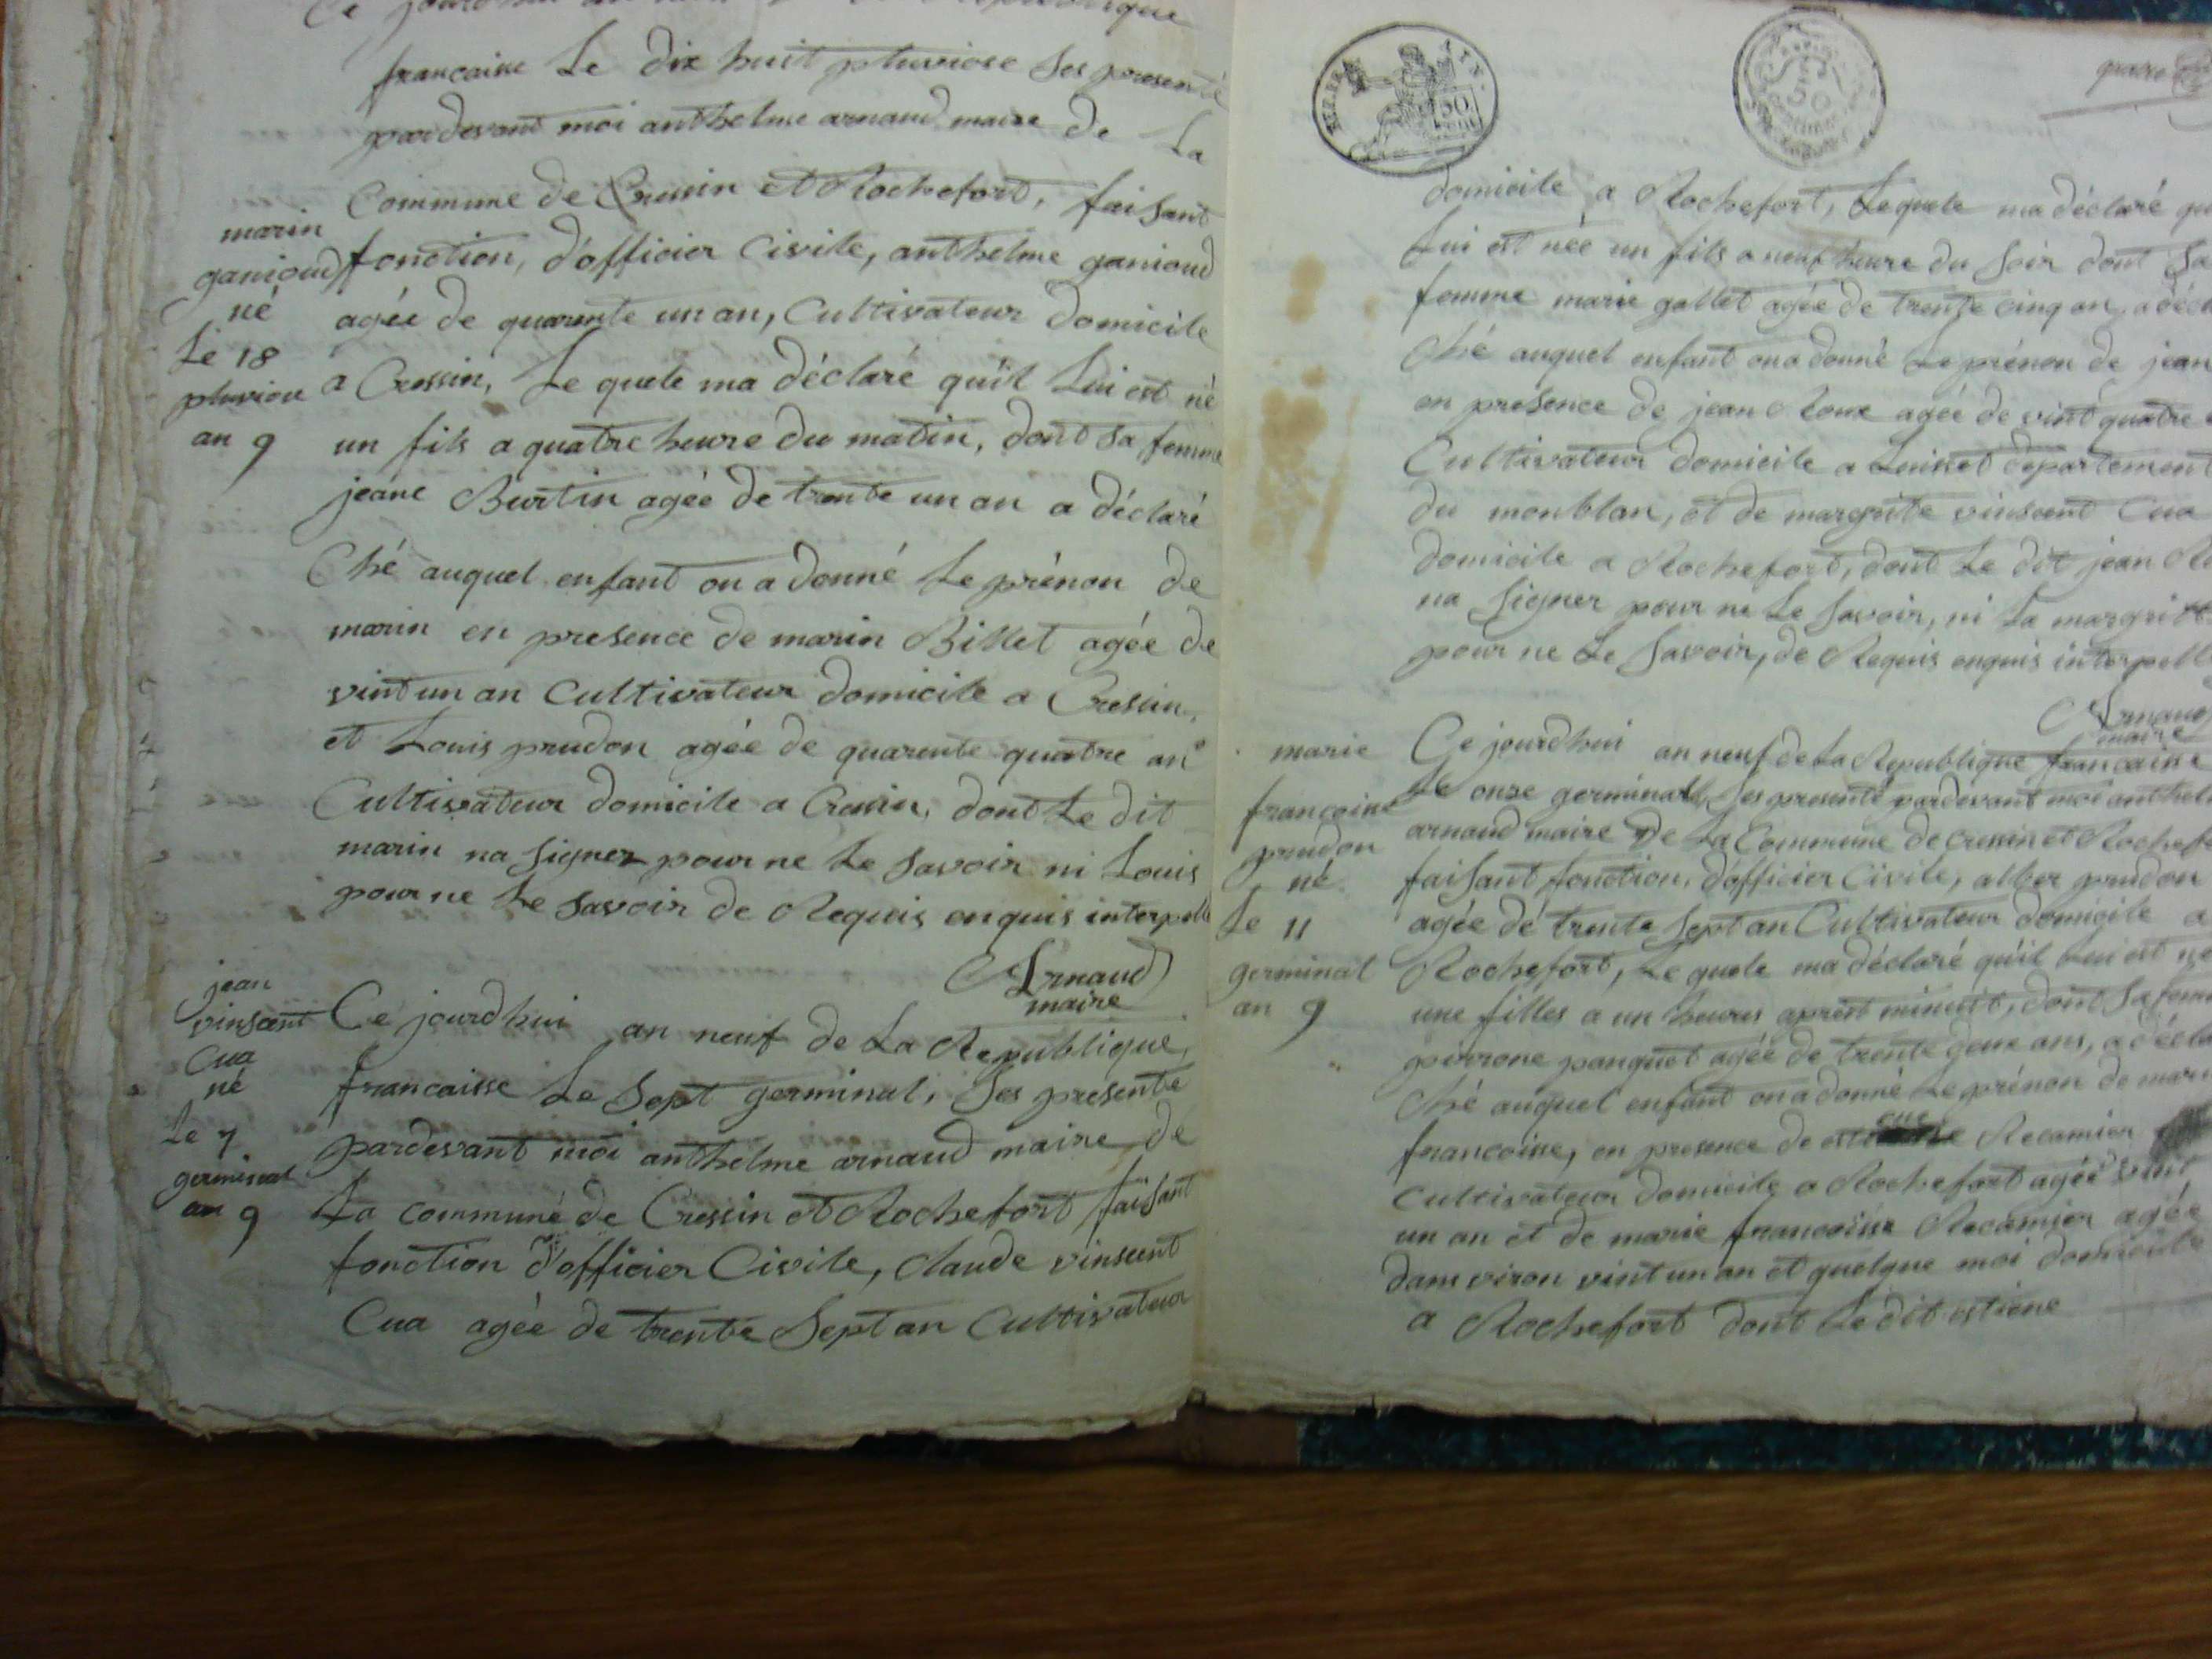 francaise Le dix huit pluviose Ses presenté
pardevant moi anthelme arnaud maire de La
Commune de Cressin et Rochefort, faisant
fonction, d'officier Civile, anthelme ganioud
agée de quarente un an, Cultivateur Domicile
a Cressin, Le quele ma déclaré qu'il Lui est né
un fils a quatre heure du matin, dont Sa femme
jeane Burtin agée de trente un an a déclaré
Ché auquel enfant on a donné Le prénon de
marin en presence de marin Billet agée de
vint un an Cultivateur domicile a Cressin,
et Louis prudon agée de quarente quatre an
Cultivateur domicile a Cressin, dont Le dit
marin na Signer pour ne Le Savoir ni Louis
pour ne Le Savoir de Requis enquis interpelle
Arnaud
maire
marin
ganioud
né
Le 18
pluviose
an 9
jean
vinscent
Cua
né
Le 7
germinal
an 9
Ce jourdhui an neuf de La Republique,
francaisse Le Sept germinal, Ses presente
pardevant moi anthelme arnaud maire de
La commune de Cressin et Rochefort faisant
fonction d'officier Civile, claude vinscent
Cua agée de trente Sept an Cultivateur
domicile a Rochefort, Le quele ma déclaré
Lui est née un fils a neuf heure du Soir dont Sa
femme marie gollet agée de trente cinq an,
Ché auquel enfant on a donné Le prénon de jean
en presence de jean Roux agée de vint quatre
Cultivateur domicile a Luisset departement
du monblan, et de margrite vinscent Cua
domicile a Rochefort, dont Le dit jean
na Signer pour ne Le Savoir, ni La margritte
pour ne Le Savoir, de Requis enquis interpelle
Arnaud
maire
marie
francoise
prudon
né
Le 11
germinal
an 9
Ce jourdhui an neuf de La Republique francaise
Le onze germinal, Ses presenté pardevant moi
arnaud maire de La Commune de cressin et
faisant fonction, d'officier Civile, alber prudon
agée de trente Sept an Cultivateur domicile a
Rochefort, Le quele ma déclaré qu'il Lui est né
une filles a un heures apres minuit, dont Sa
agée de trente deux ans,
Ché auquel enfant on a donné Le prénon de
francoise, en presence de Recamier
Cultivateur domicile a Rochefort agée vint
un an et de marie francoise Recamier agée
danviron vint un an et quelque moi domicile
a Rochefort dont Le dit estiene